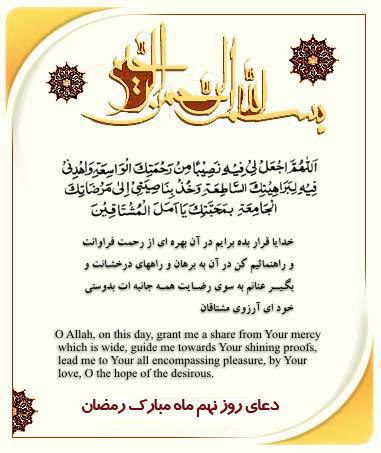 بسم الله الرحمن الرحیم
اَللّهُمَّ اجْعَلْ لی فیهِ نَصیبًا مِنْ رَحْمَتِكَ الْواسِعَةِ وَاهْدِنی
فیهِ لِبَراهینِكَ السّاطِعَةِ وَخُذْ بِناصِیَتی اِلى مَرْضاتِكَ
الْجامِعَةِ بِمَحَبَّتِكَ یا اَمَلَ الْمُشْتاقینَ
خدایا قرار بده برایم در آن بهره ای از رحمت فراوانت
و راهنمائیم کن در آن به برهان و راههای درخشانت و
بگیر عنانم به سوی رضایت همه جانبه ات بدوستی
خود ای آرزوی مشتاقان
O Allah, on this day, grant me a share from Your mercy
which is wide, guide me towards Your shining proofs,
lead me to Your all encompassing pleasure, by Your
love, O the hope of the desirous.
دعای روز نهم ماه مبارک رمضان